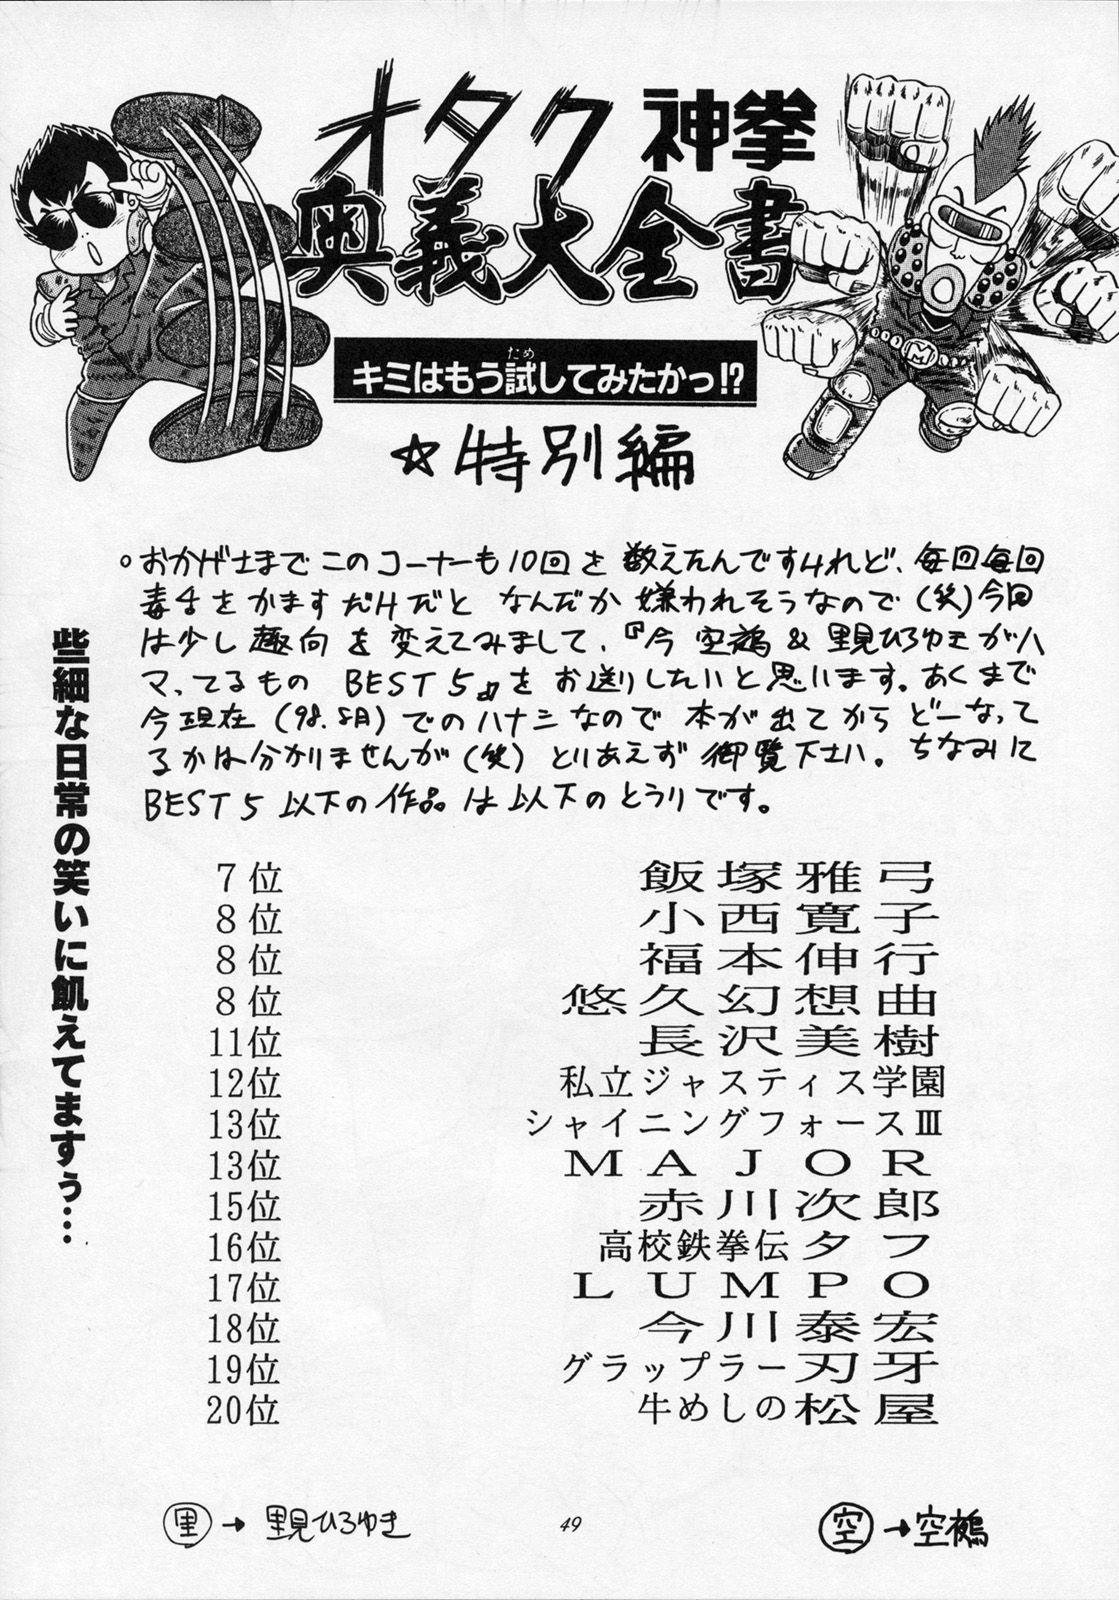 オタク神拳
奥義大全書
キミはもう試してみたかっ!?
ため
☆特別編
。おかげさまでこのコーナーも10回を数えたんですけれど、毎回毎回
毒舌をかますだけだとなんだか嫌われそうなので(笑)今回
は少し趣向を変えてみまして、『今空鵺&里見ひろゆきがハ
マってるもの BEST5』をお送りしたいと思います。あくまで
今現在(98.8月)でのハナシなので本が出てからどーなって
るかは分かりませんが(笑)とりあえず御覧下さい。ちなみに
BEST5以下の作品は以下のとうりです。
些細な日常の笑いに飢えてますぅ…
7位 飯塚雅弓
8位 小西寛子
8位 福本伸行
8位 悠久幻想曲
11位 長沢美樹
12位 私立ジャスティス学園
13位 シャイニングフォースⅢ
13位 MAJOR
15位 赤川次郎
16位 高校鉄拳伝タフ
17位 LUMPO
18位 今川泰宏
19位 グラップラー刃牙
20位 牛めしの松屋
M
里→里見ひろゆき
49
空→空鵺